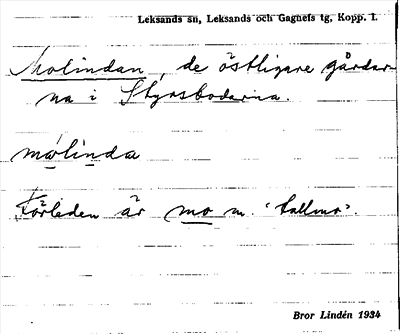 Leksands sn, Leksands och Gagnefs tg, Kopp. l.
Molindan, de östligare gårdar-
na i Styrsbodarna.
mòlìnda
Förleden är mo m. 'tallmo'.
Bror Lindén 1934